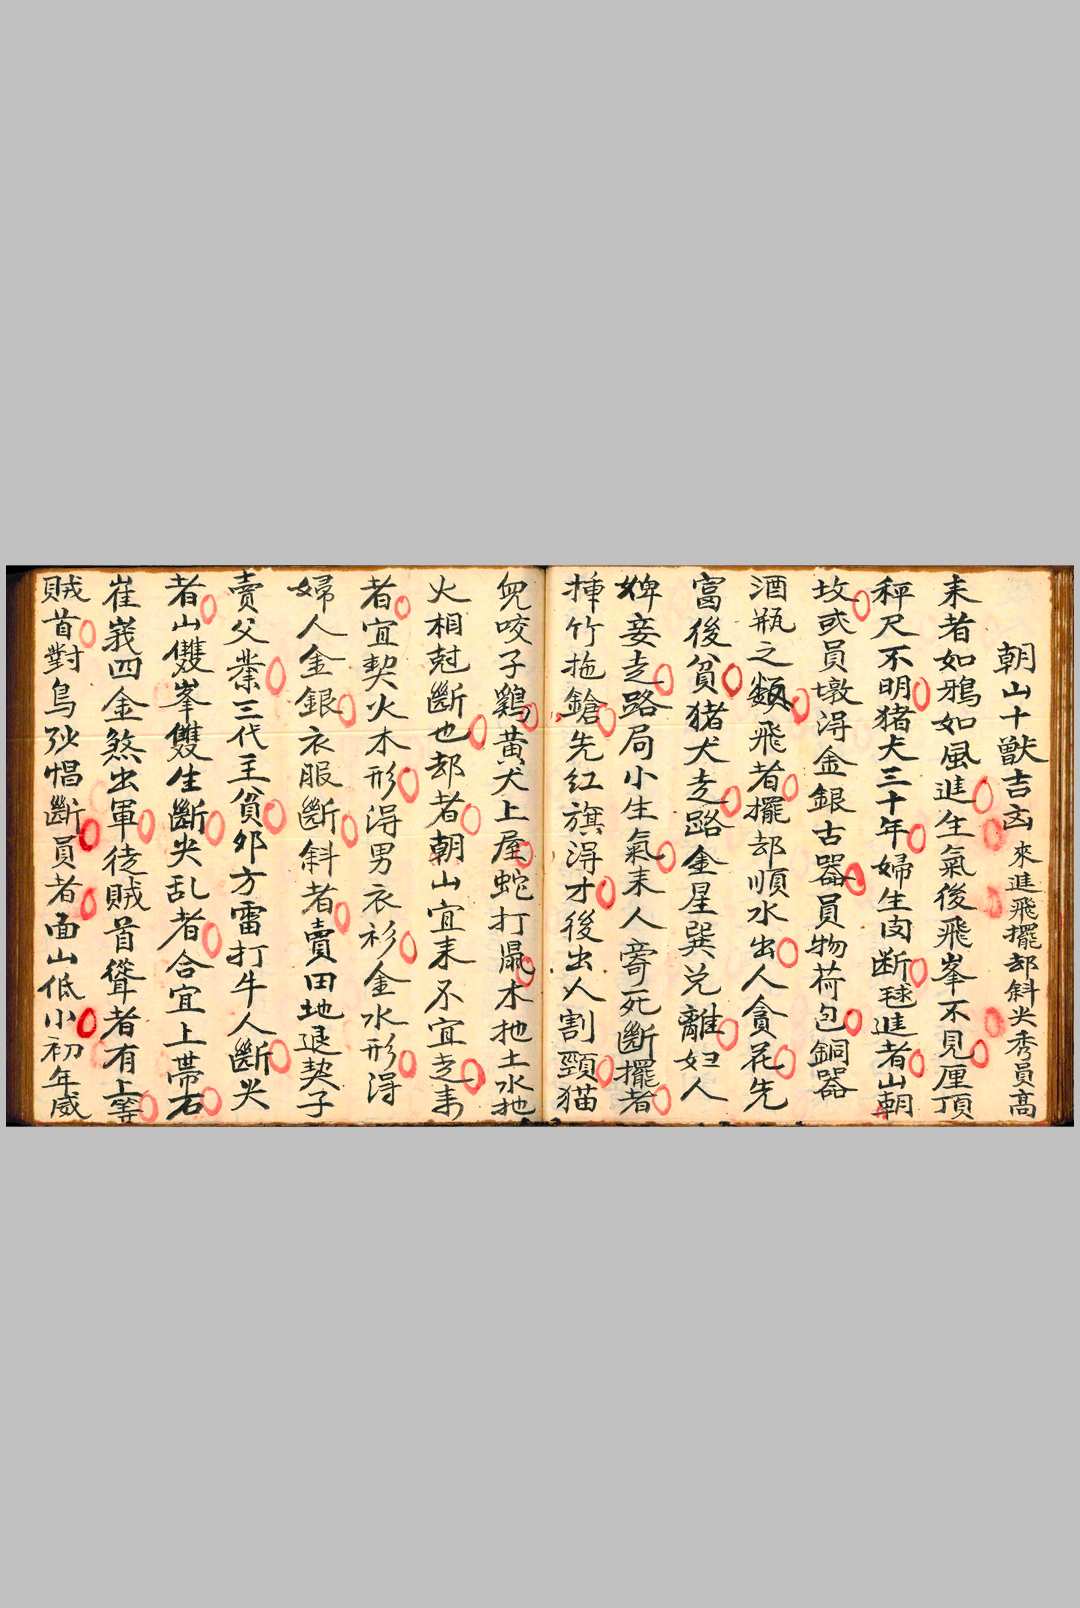 朝山十獸吉凶 來進飛擺却斜尖秀員高
耒者如鴉如風進生氣後飛峯不見厘頂
秤尺不明猪犬三十年婦生肉断毬進者山朝
坟或員墩淂金銀古器員物荷包銅器
酒瓶之類飛者擺却順水出人貪花先
富後貧猪犬走路金星巽兑離妇人
婢妾走路局小生氣耒人寄死斷擺者
挿竹拖鎗先紅旗淂才後出人割頸猫
兔咬子鷄黄犬上屋蛇打鼠木地土水地
火相尅斷也却者朝山宜耒不宜走耒
者宜契火木形淂男衣衫金水形淂
婦人金銀衣服斷斜者賣田地退契子
賣父業三代王貧邜方雷打牛人斷尖
者山雙峯雙生斷尖乱者合宜上帶石
崔峩四金煞出軍徒賊首聳者有上等
賊首對鳥沙惺斷員者面山低小初年歲